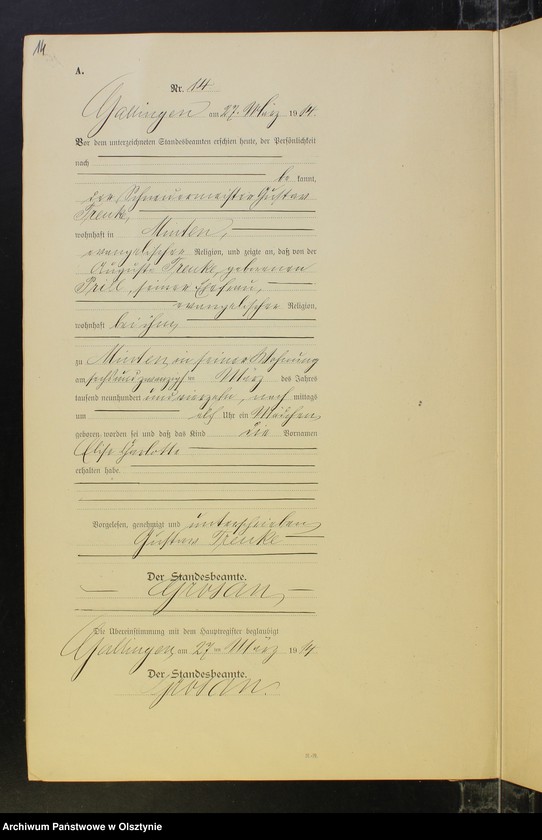 14
A.
Nr. 14
Gallingen am 27. März 1914.
Vor dem unterzeichneten Standesbeamten erschien heute, der Persönlichkeit
nach
be kannt,
der Schneidermeister Gustav
wohnhaft in Minten,
evangelischer Religion, und zeigte an, daß von der
Auguste geborenen
seiner Ehefrau,
evangelischer Religion,
wohnhaft bei ihm,
zu Minten, in seiner Wohnung
am sechsundzwanzigsten März des Jahres
tausend neunhundert und vierzehn, nach mittags
um elf Uhr ein Mädchen
geboren worden sei und daß das Kind die Vornamen
erhalten habe.
Vorgelesen, genehmigt und unterschrieben
Gustav
Der Standesbeamte.
Grosan
Die Übereinstimmung mit dem Hauptregister beglaubigt
Gallingen, am 27 ten März 1914.
Der Standesbeamte.
Grosan.
Archiwum Państwowe w Olsztynie